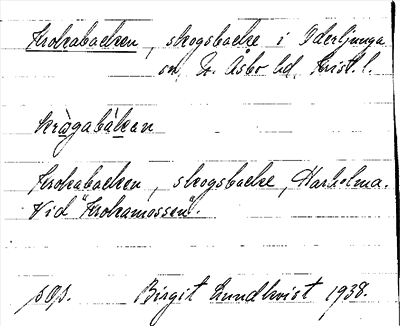 Krokabacken, skogsbacke i Oderljunga
sn, N. Åsbo hd, Krist. l.
kràgabàkan
Krokabacken, skogsbacke, Harholma.
Vid "Krokamossen".
pop. Birgit Lundkvist 1938.